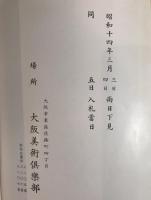 昭和十四年三月
三日
四日
兩日下見
同
五日入札當日
場所
大阪市東區淡路町四丁目
大阪美術俱樂部